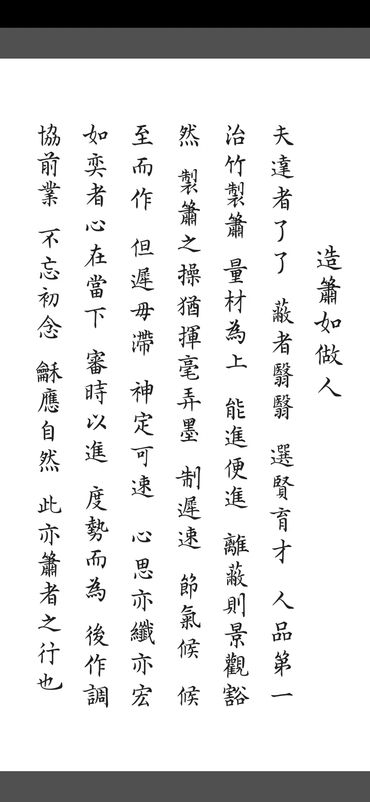 造簫如做人
夫達者了了 蔽者翳翳 選賢育才 人品第一
治竹製簫 量材為上 能進便進 離蔽則景觀豁
然 製簫之操猶揮毫弄墨 制遲速 節氣候 候
至而作 但遲毋滯 神定可速 心思亦纖亦宏
如奕者心在當下 審時以進 度勢而為 後作調
協前業 不忘初念 龢應自然 此亦簫者之行也